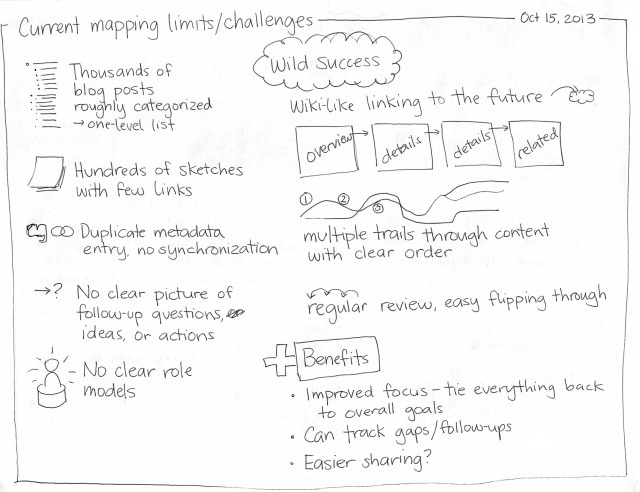 Current mapping limits/challenges
Oct 15, 2013
Thousands of
blog posts
roughly categorized
→ one-level list
Hundreds of sketches
with few links
Duplicate metadata
entry, no synchronization
→? No clear picture of
follow-up questions,
ideas, or actions
No clear role
models
Wild Success
Wiki-like linking to the future
overview → details → details → related
1 2 3
multiple trails through content
with clear order
regular review, easy flipping through
Benefits
• Improved focus – tie everything back
to overall goals
• Can track gaps/follow-ups
• Easier sharing?